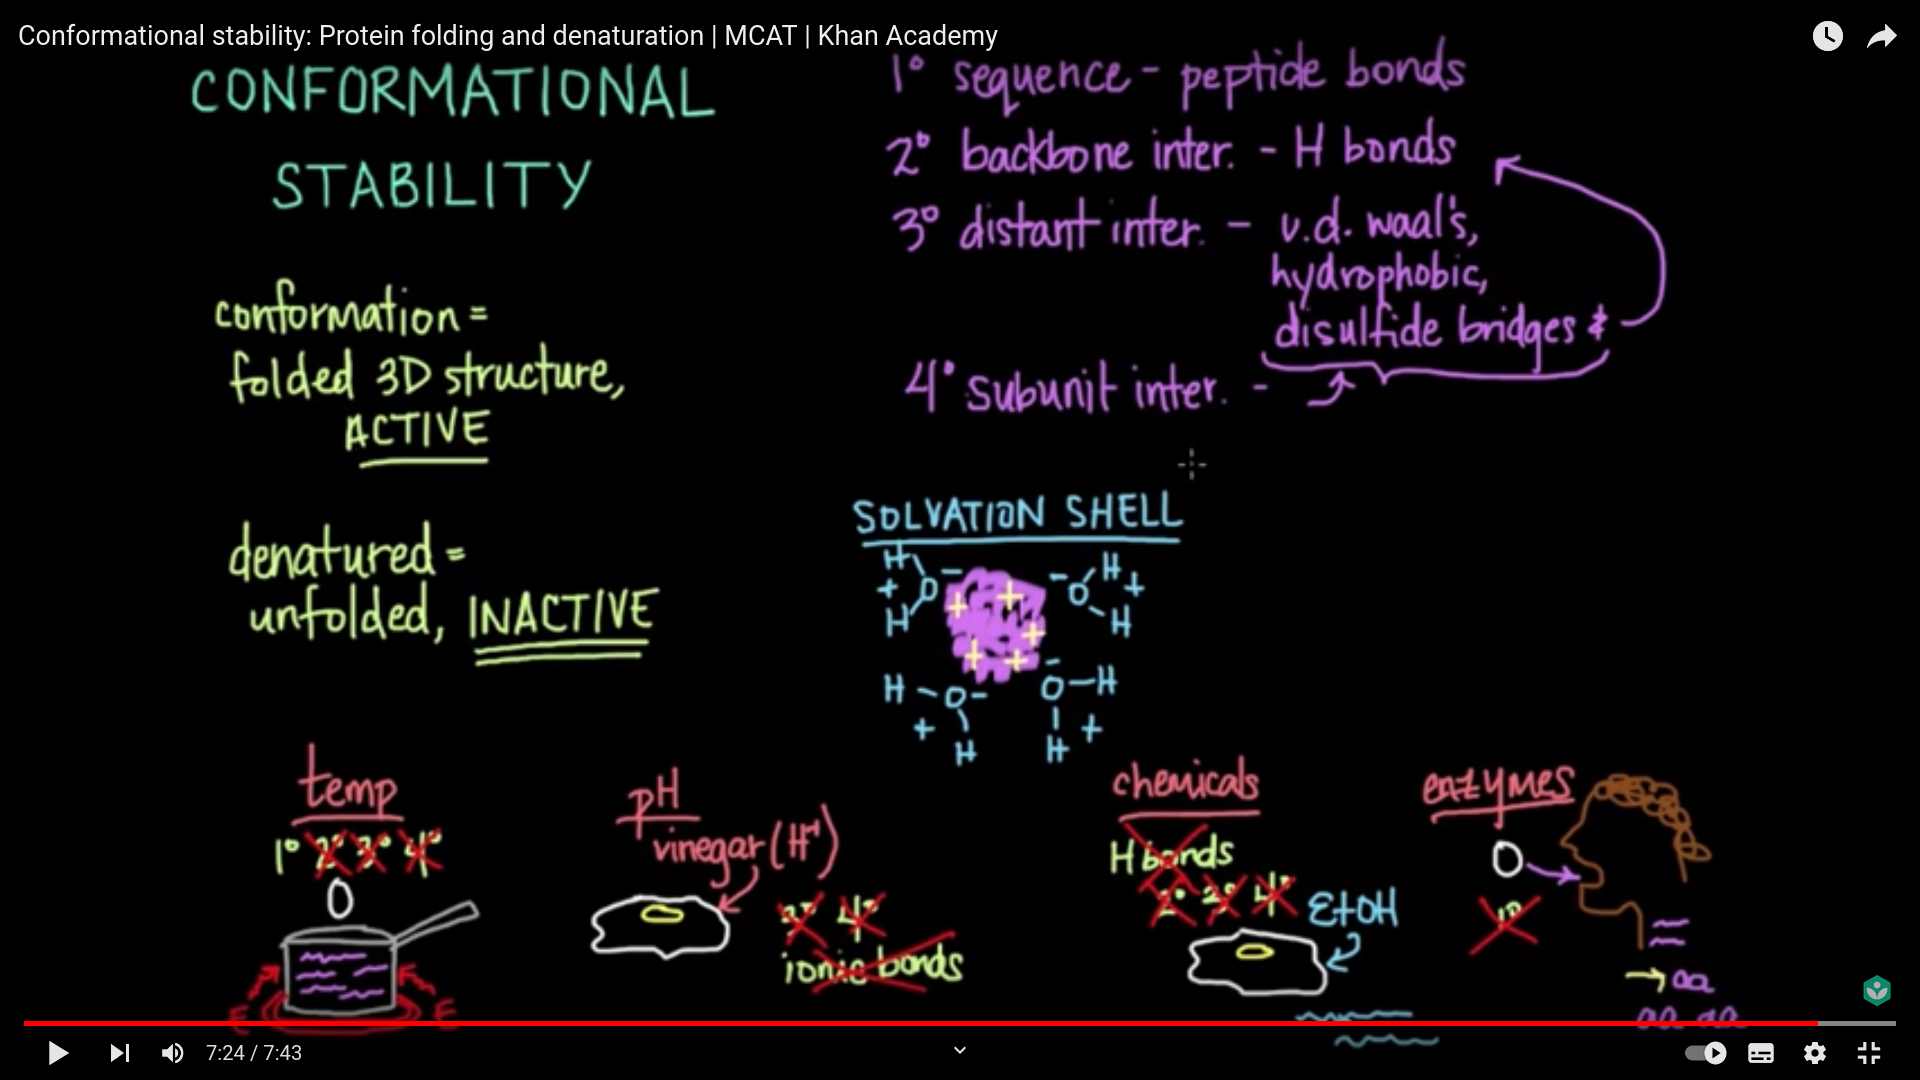 Conformational stability: Protein folding and denaturation | MCAT | Khan Academy
CONFORMATIONAL
STABILITY
conformation =
folded 3D structure,
ACTIVE
denatured =
unfolded, INACTIVE
1° sequence - peptide bonds
2° backbone inter. - H bonds
3° distant inter. - v.d. waal's,
hydrophobic,
disulfide bridges &
4° subunit inter. -
SOLVATION SHELL
H O - - O H
+ H + + + H +
+ + +
H - O - - O - H
+ H H +
temp
1° 2° 3° 4°
E E
pH
vinegar (H+)
3° 4°
ionic bonds
chemicals
H bonds
2° 3° 4° EtOH
enzymes
1°
→ aa
aa aa
7:24 / 7:43